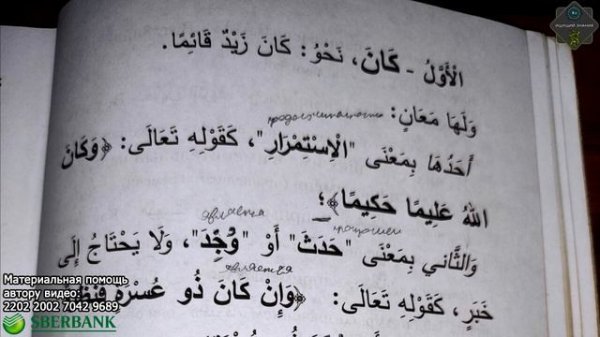 الْأَوَّلُ - كَانَ، نَحْوُ: كَانَ زَيْدٌ قَائِمًا.
وَلَهَا مَعَانٍ:
أَحَدُهَا بِمَعْنَى "الْاِسْتِمْرَارِ"، كَقَوْلِهِ تَعَالَى: ﴿وَكَانَ
اللهُ عَلِيمًا حَكِيمًا﴾؛
является
وَالثَّانِي بِمَعْنَى "حَدَثَ" أَوْ "وُجِدَ"، وَلَا يَحْتَاجُ إِلَى
является
خَبَرٍ، كَقَوْلِهِ تَعَالَى: ﴿وَإِنْ كَانَ ذُو عُسْرَةٍ
Материальная помощь
автору видео:
2202 2002 7042 9689
SBERBANK